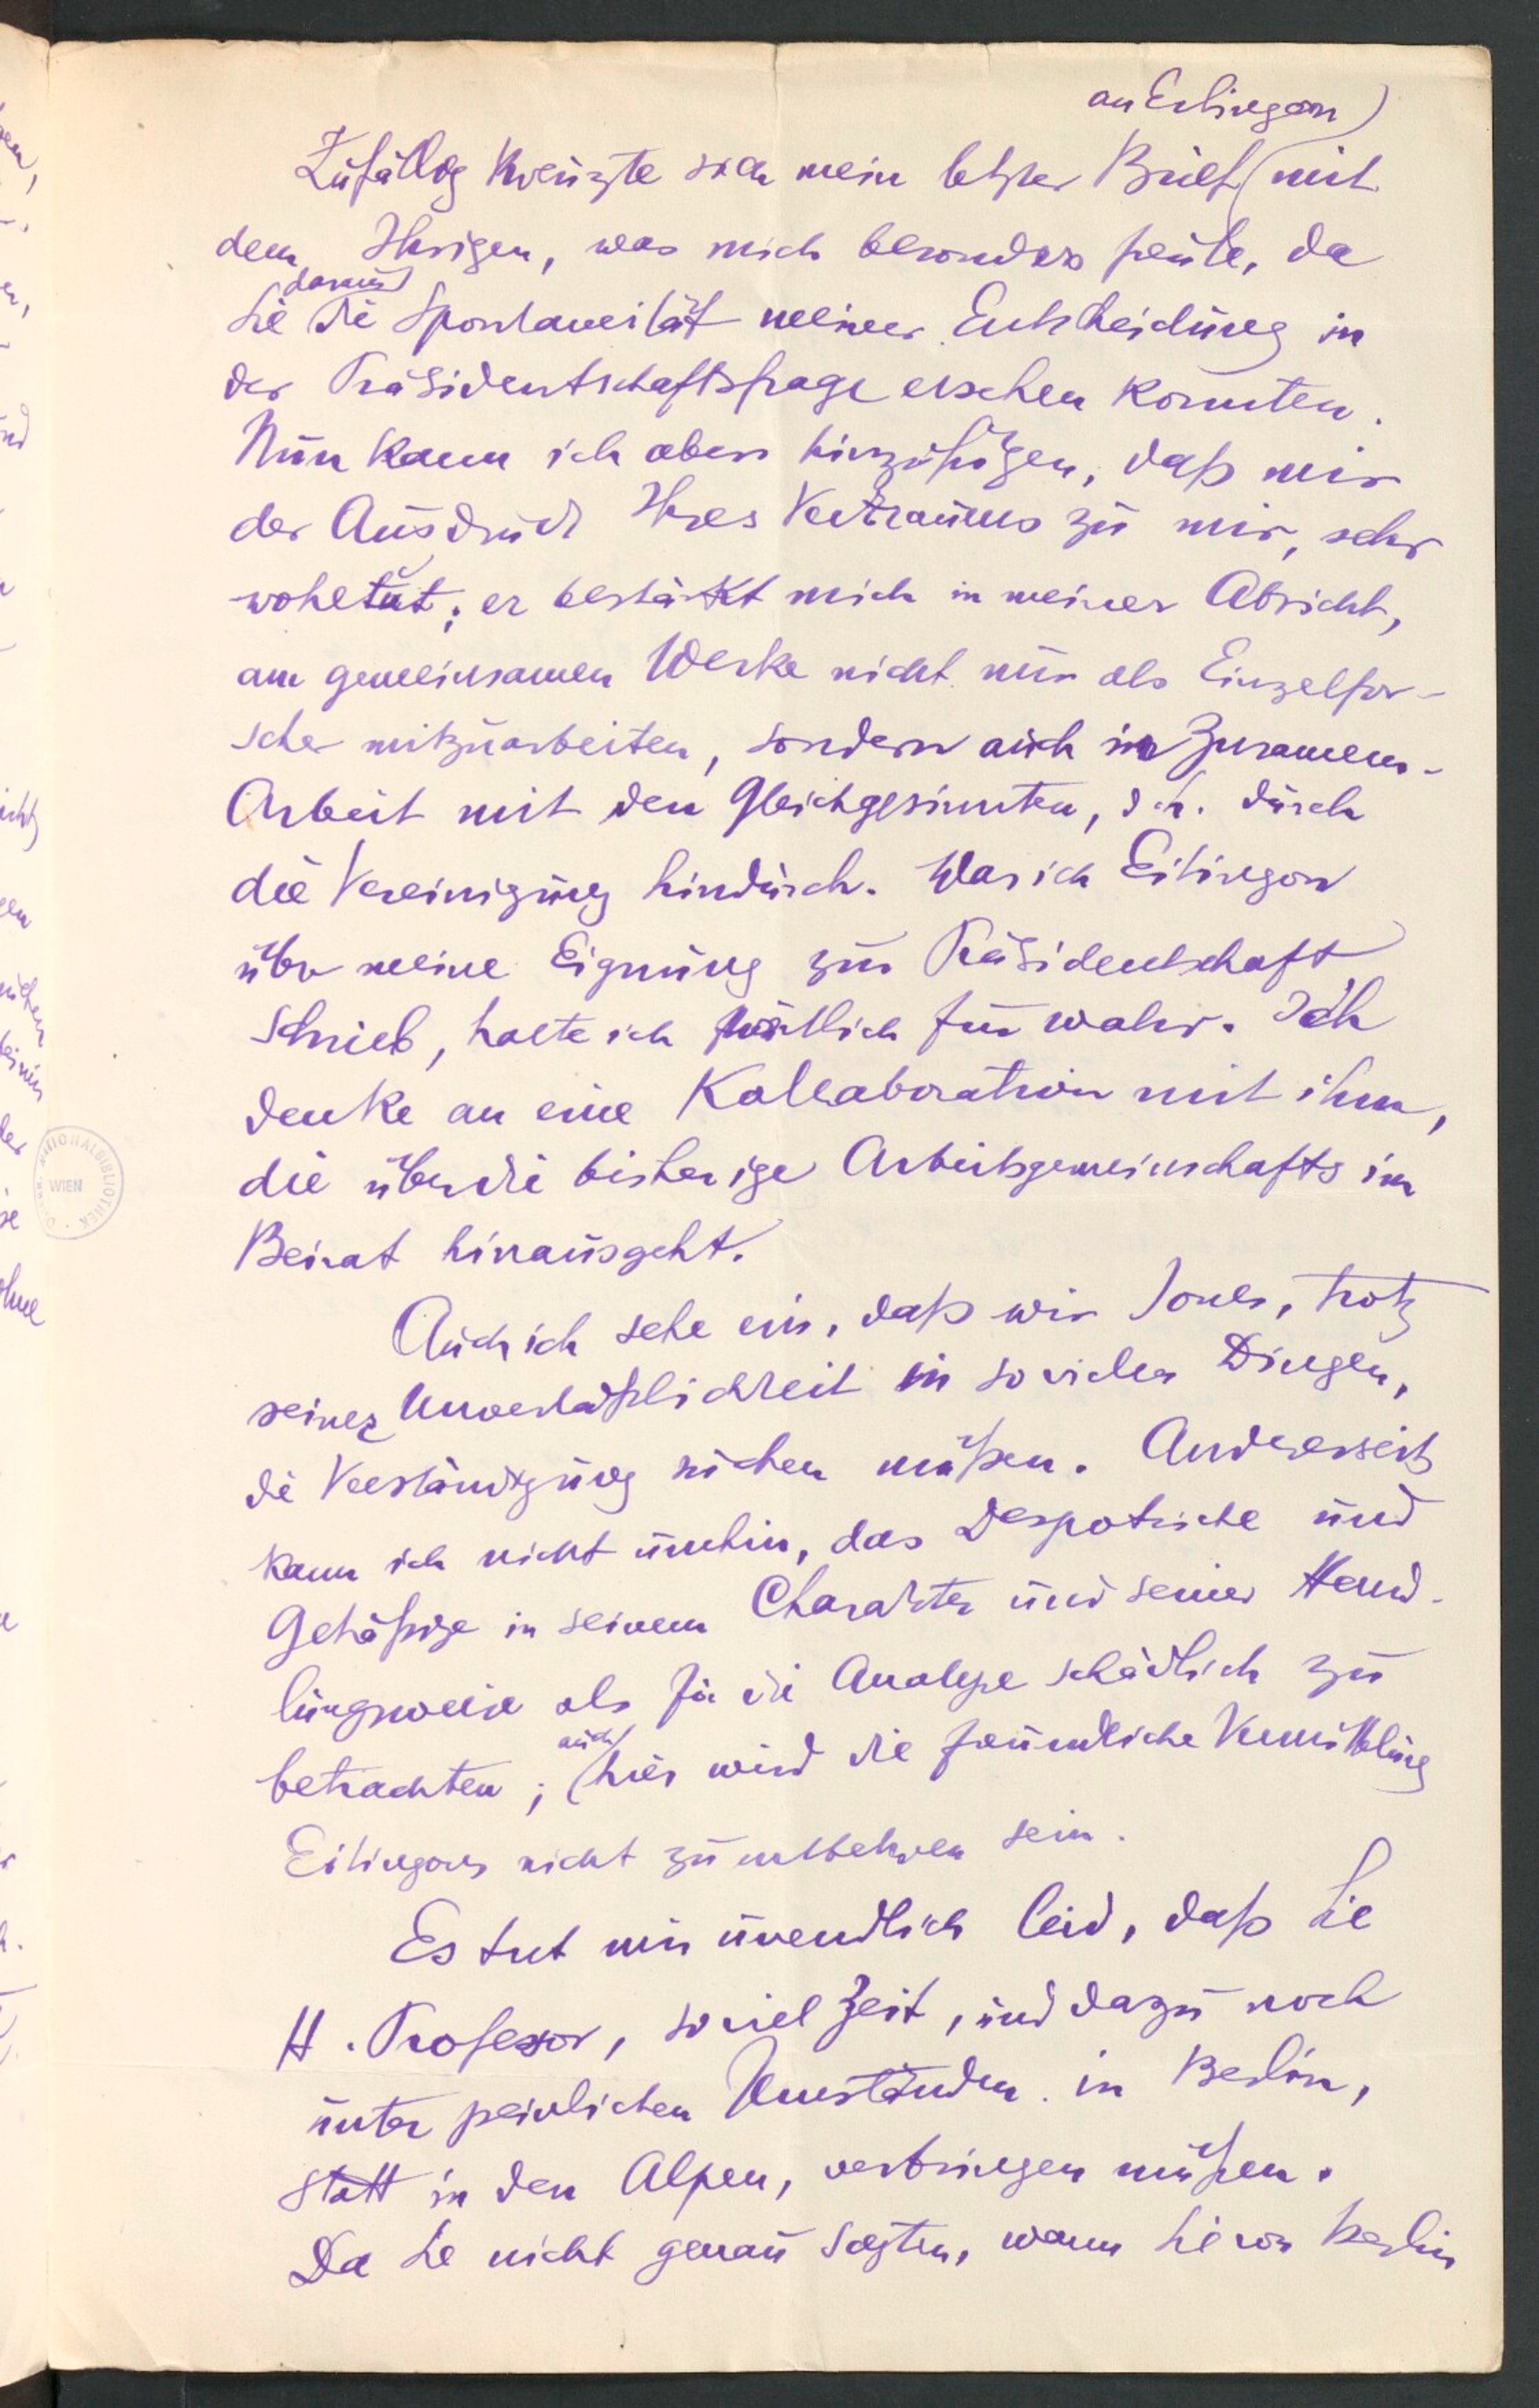 an Eitingon)
Zufällig kreuzte sich mein letzter Brief (mit
dem Ihrigen, was mich besonders freute, da
daraus)
Sie die Spontaneität meiner Entscheidung in
der Präsidentschaftsfrage ersehen konnten.
Nun kann ich aber hinzufügen, daß mir
der Ausdruck Ihres Vertrauens zu mir, sehr
wohltut; er bestärkt mich in meiner Absicht,
am gemeinsamen Werke nicht nur als Einzelfor-
scher mitzuarbeiten, sondern auch in Zusammen-
Arbeit mit den Gleichgesinnten, d.h. durch
die Vereinigung hindurch. Was ich Eitingon
über meine Eignung zur Präsidentschaft
schrieb, halte ich wörtlich für wahr. Ich
denke an eine Kollaboration mit ihm,
die über die bisherige Arbeitsgemeinschafts im
Beirat hinausgeht.
Auch ich sehe ein, daß wir Jones, trotz
seiner Unverläßlichkeit in so vielen Dingen,
die Verständigung suchen müßen. Anderseits
kann ich nicht umhin, das Despotische und
Gehäßige in seinem Charakter und seiner Hand-
lungsweise als für die Analyse schädlich zu
betrachten; (auch) hier wird die freundliche Vermittlung
Eitingons nicht zu entbehren sein.
Es tut mir unendlich leid, daß Sie
H. Professor, soviel Zeit, und dazu noch
unter peinlichen Umständen in Berlin,
statt in den Alpen, verbringen müßen.
Da Sie nicht genau sagten, wann Sie von Berlin
WIEN